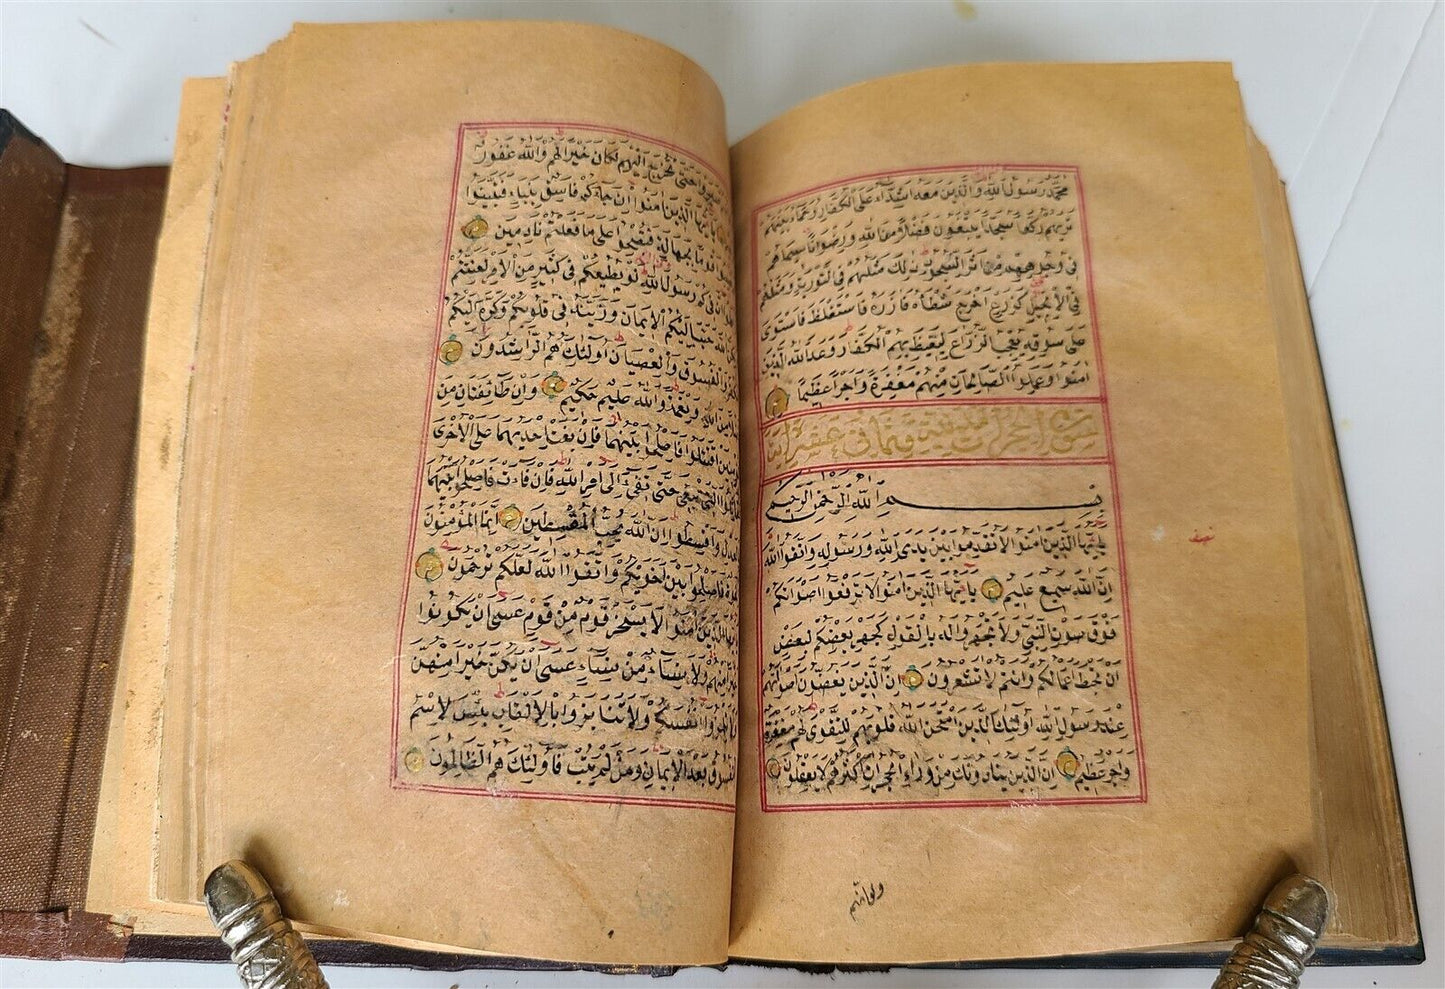 محمد رسول الله والذين معه اشداء على الكفار رحماء بينهم
تريهم ركعا سجدا يبتغون فضلا من الله ورضوانا سيماهم
في وجوههم من اثر السجود ذلك مثلهم في التورية ومثلهم
في الإنجيل كزرع اخرج شطأه فازره فاستغلظ فاستوى
على سوقه يعجب الزراع ليغيظ بهم الكفار وعد الله الذين
امنوا وعملوا الصالحات منهم مغفرة واجرا عظيما
سورة الحجرات مدنية وهي ثماني عشرة اية
بسم الله الرحمن الرحيم
يا ايها الذين امنوا لا تقدموا بين يدى الله ورسوله واتقوا الله
ان الله سميع عليم يا ايها الذين امنوا لا ترفعوا اصواتكم
فوق صوت النبي ولا تجهروا له بالقول كجهر بعضكم لبعض
ان تحبط اعمالكم وانتم لا تشعرون ان الذين يغضون اصواتهم
عند رسول الله اولئك الذين امتحن الله قلوبهم للتقوى لهم مغفرة
واجر عظيم ان الذين ينادونك من وراء الحجرات اكثرهم لا يعقلون
ولو انهم
نصف
صبروا حتى تخرج اليهم لكان خيرا لهم والله غفور
يا ايها الذين امنوا ان جاءكم فاسق بنباء فتبينوا
قوما بجهالة فتصبحوا على ما فعلتم نادمين
ان فيكم رسول الله لو يطيعكم في كثير من الامر لعنتم
الله حبب اليكم الإيمان وزينه في قلوبكم وكره اليكم
والفسوق والعصيان اولئك هم الراشدون
من الله ونعمة والله عليم حكيم وان طائفتان من
اقتتلوا فاصلحوا بينهما فان بغت احديهما على الاخرى
التي تبغي حتى تفيء الى امر الله فان فاءت فاصلحوا بينهما
واقسطوا ان الله يحب المقسطين انما المؤمنون
فاصلحوا بين اخويكم واتقوا الله لعلكم ترحمون
الذين امنوا لا يسخر قوم من قوم عسى ان يكونوا
منهم ولا نساء من نساء عسى ان يكن خيرا منهن
تلمزوا انفسكم ولا تنابزوا بالالقاب بئس لاسم
الفسوق بعد الإيمان ومن لم يتب فأولئك هم الظالمون